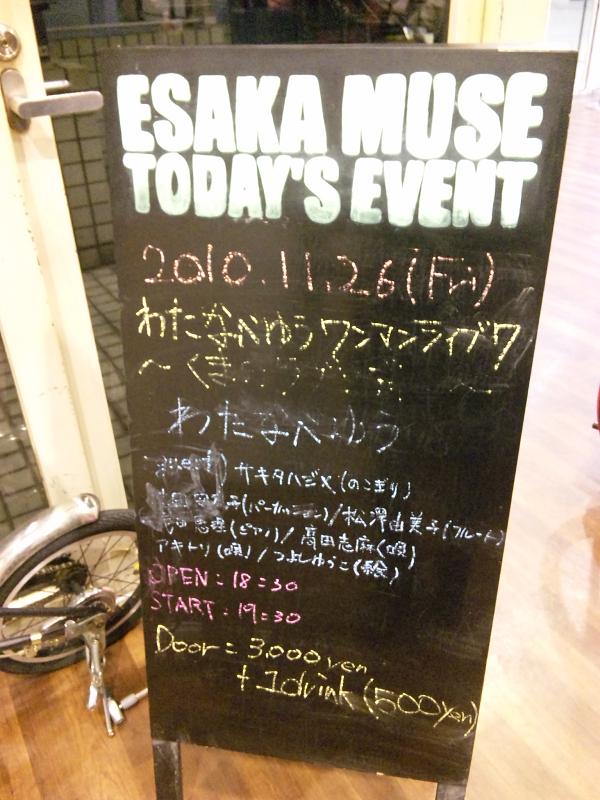 ESAKA MUSE
TODAY'S EVENT
2010.11.26(Fri)
わたなべゆうワンマンライブ7
〜くま
わたなべゆう
サキタハヂメ(のこぎり)
子(パーカッション)/松澤由美子(フルート)
(ピアノ)/高田志麻(唄)
アキトリ(唄)/つよしゆうこ(絵)
OPEN:18:30
START:19:30
Door=3,000yen
+1drink(500yen)